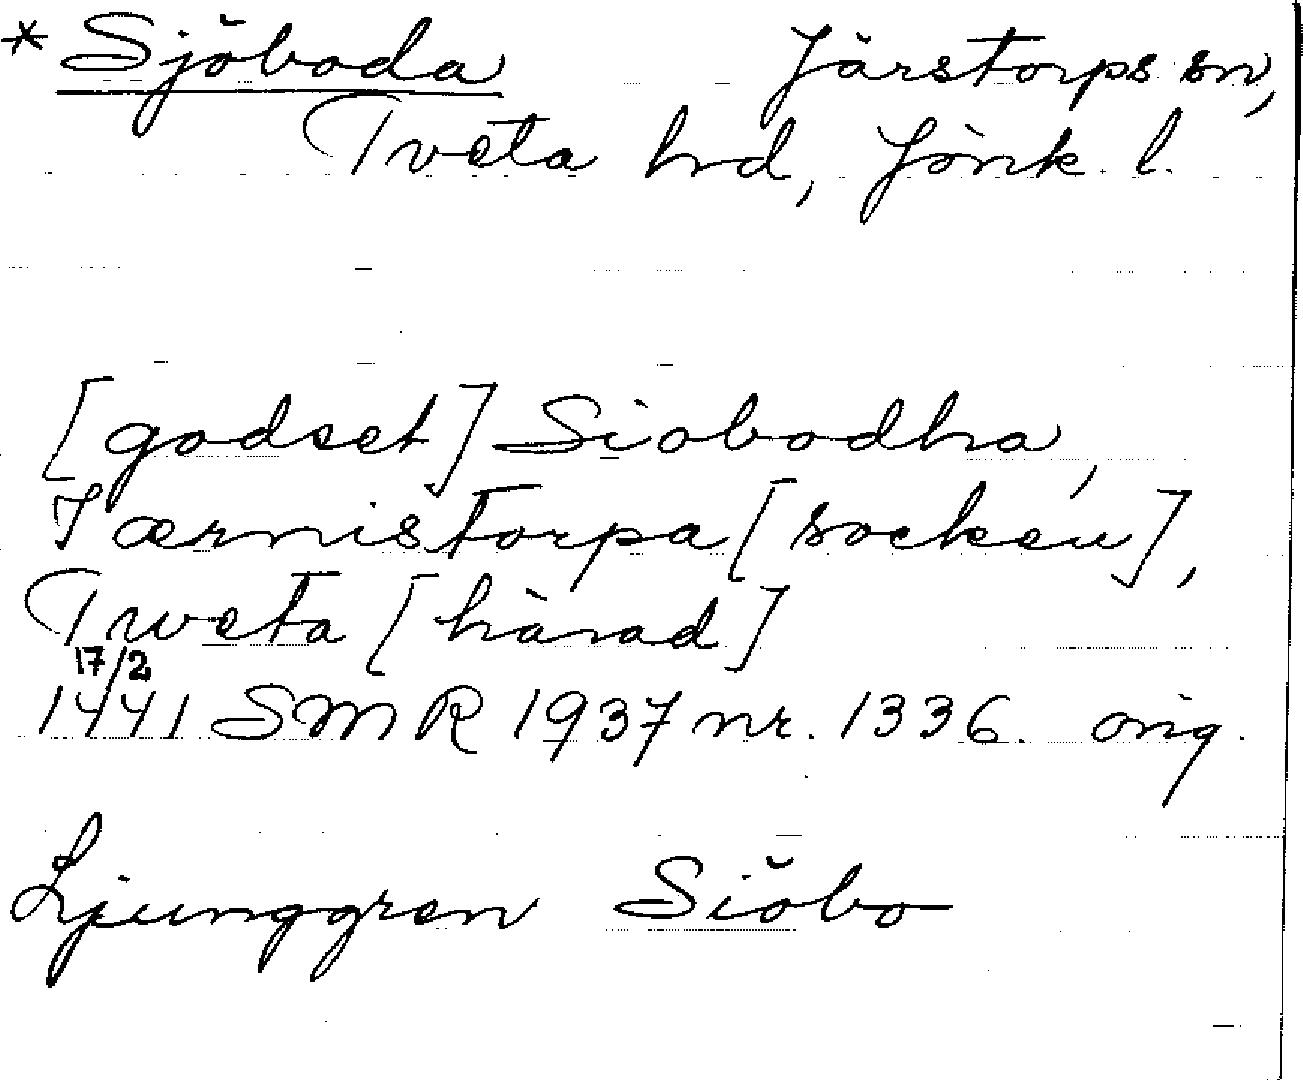 * Sjöboda Järstorps sn,
Tveta hrd, Jönk. l.
[godset] Siobodha,
Iærnistorpa [socken],
Tweta [härad]
17/2
1441 SMR 1937 nr. 1336. orig.
Ljunggren Siöbo